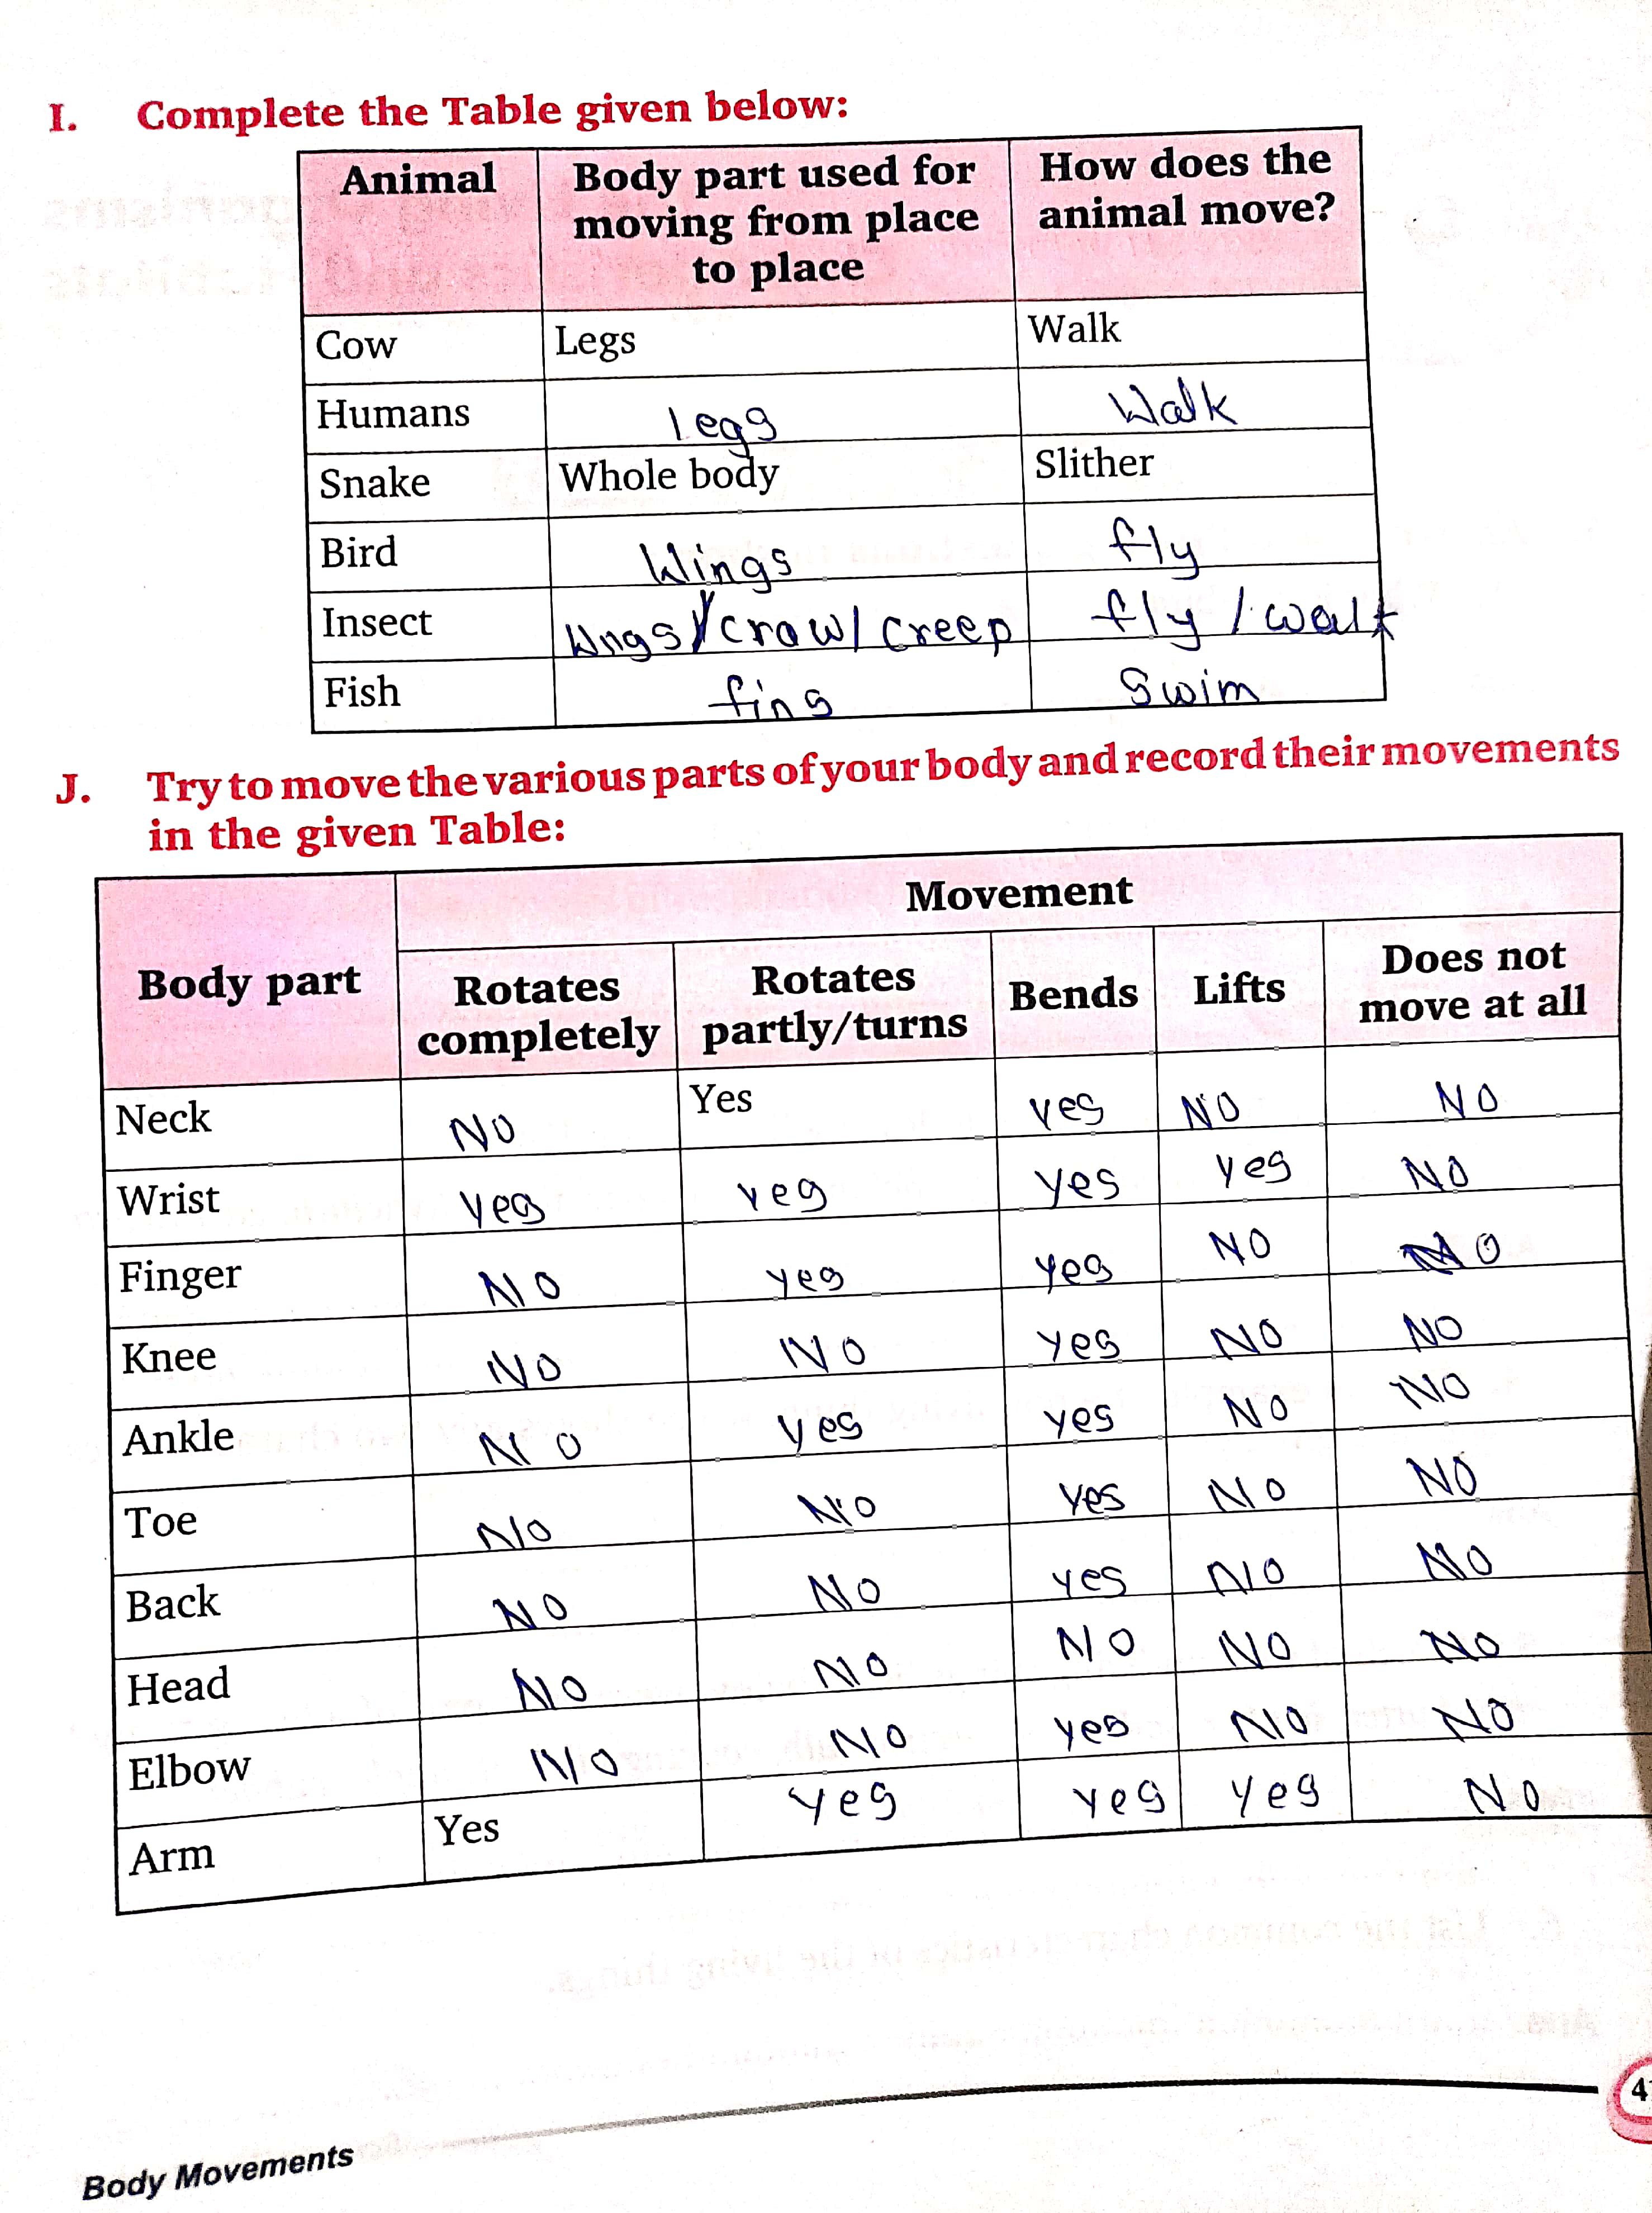 I. Complete the Table given below:
Animal | Body part used for moving from place to place | How does the animal move?
Cow | Legs | Walk
Humans | legs | Walk
Snake | Whole body | Slither
Bird | Wings | fly
Insect | Wngs/crawl creep | fly / walk
Fish | fins | Swim
J. Try to move the various parts of your body and record their movements
in the given Table:
Body part | Movement
Rotates completely | Rotates partly/turns | Bends | Lifts | Does not move at all
Neck | NO | Yes | yes | NO | NO
Wrist | yes | yes | yes | yes | NO
Finger | NO | yes | yes | NO | NO
Knee | NO | NO | yes | NO | NO
Ankle | NO | yes | yes | NO | NO
Toe | NO | NO | yes | NO | NO
Back | NO | NO | yes | NO | NO
Head | NO | NO | NO | NO | NO
Elbow | NO | NO | yes | NO | NO
Arm | Yes | yes | yes | yes | NO
Body Movements